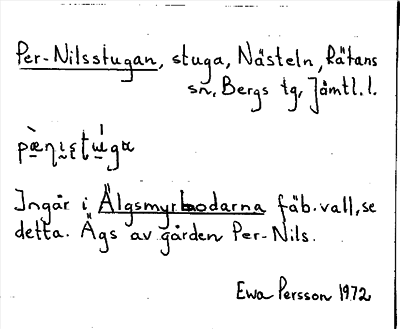 Per-Nilsstugan, stuga, Nästeln, Rätans
sn, Bergs tg, Jämtl.l.
Ingår i Älgsmyrbodarna fäb.vall, se
detta. Ägs av gården Per-Nils.
Ewa Persson 1972